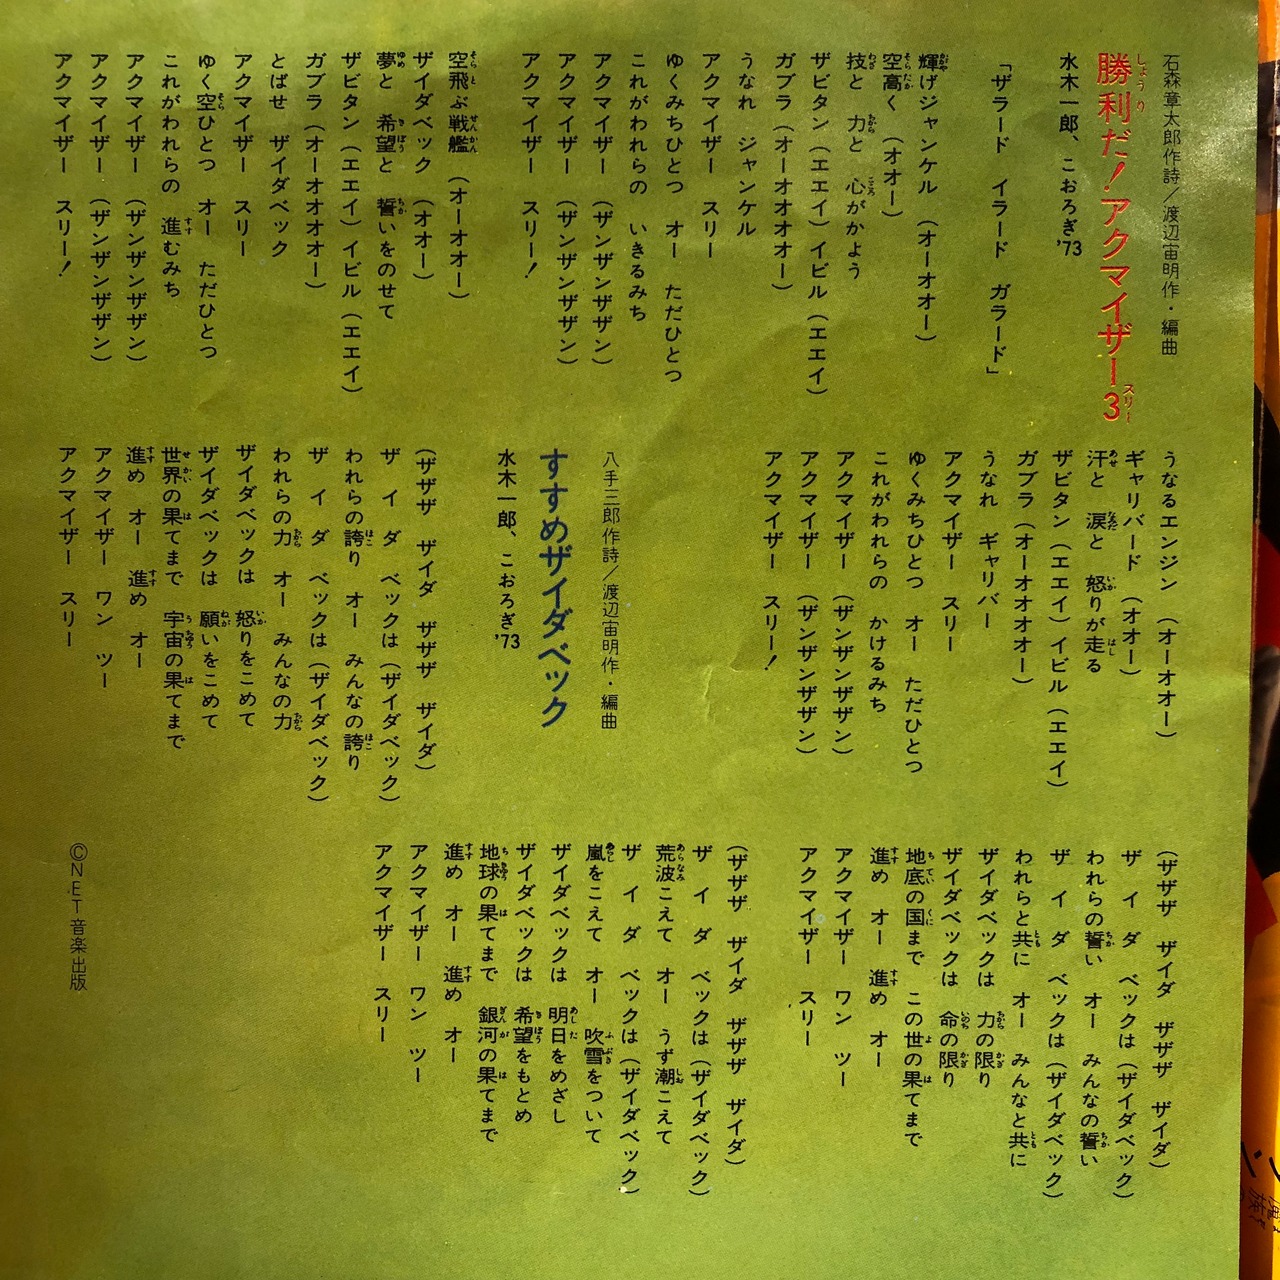 石森章太郎作詩／渡辺宙明作・編曲
勝利だ！アクマイザー3
水木一郎、こおろぎ'73
「ザラード　イラード　ガラード」
輝げジャンケル　（オーオオー）
空高く　（オオー）
技と　力と　心がかよう
ザビタン（エエイ）イビル（エエイ）
ガブラ（オーオオオオー）
うなれ　ジャンケル
アクマイザー　スリー
ゆくみちひとつ　オー　ただひとつ
これがわれらの　いきるみち
アクマイザー　（ザンザンザザン）
アクマイザー　（ザンザンザザン）
アクマイザー　スリー！
空飛ぶ戦艦　（オーオオー）
ザイダベック　（オオー）
夢と　希望と　誓いをのせて
ザビタン（エエイ）イビル（エエイ）
ガブラ（オーオオオオー）
とばせ　ザイダベック
アクマイザー　スリー
ゆく空ひとつ　オー　ただひとつ
これがわれらの　進むみち
アクマイザー　（ザンザンザザン）
アクマイザー　（ザンザンザザン）
アクマイザー　スリー！
うなるエンジン　（オーオオー）
ギャリバード　（オオー）
汗と　涙と　怒りが走る
ザビタン（エエイ）イビル（エエイ）
ガブラ（オーオオオオー）
うなれ　ギャリバー
アクマイザー　スリー
ゆくみちひとつ　オー　ただひとつ
これがわれらの　かけるみち
アクマイザー　（ザンザンザザン）
アクマイザー　（ザンザンザザン）
アクマイザー　スリー！
八手三郎作詩／渡辺宙明作・編曲
すすめザイダベック
水木一郎、こおろぎ'73
（ザザザ　ザイダ　ザザザ　ザイダ）
ザ　イ　ダ　ベックは（ザイダベック）
われらの誇り　オー　みんなの誇り
ザ　イ　ダ　ベックは（ザイダベック）
われらの力　オー　みんなの力
ザイダベックは　怒りをこめて
ザイダベックは　願いをこめて
世界の果てまで　宇宙の果てまで
進め　オー　進め　オー
アクマイザー　ワン　ツー
アクマイザー　スリー
（ザザザ　ザイダ　ザザザ　ザイダ）
ザ　イ　ダ　ベックは（ザイダベック）
われらの誓い　オー　みんなの誓い
ザ　イ　ダ　ベックは（ザイダベック）
われらと共に　オー　みんなと共に
ザイダベックは　力の限り
ザイダベックは　命の限り
地底の国まで　この世の果てまで
進め　オー　進め　オー
アクマイザー　ワン　ツー
アクマイザー　スリー
（ザザザ　ザイダ　ザザザ　ザイダ）
ザ　イ　ダ　ベックは（ザイダベック）
荒波こえて　オー　うず潮こえて
ザ　イ　ダ　ベックは（ザイダベック）
嵐をこえて　オー　吹雪をついて
ザイダベックは　明日をめざし
ザイダベックは　希望をもとめ
地球の果てまで　銀河の果てまで
進め　オー　進め　オー
アクマイザー　ワン　ツー
アクマイザー　スリー
ⒸNET音楽出版